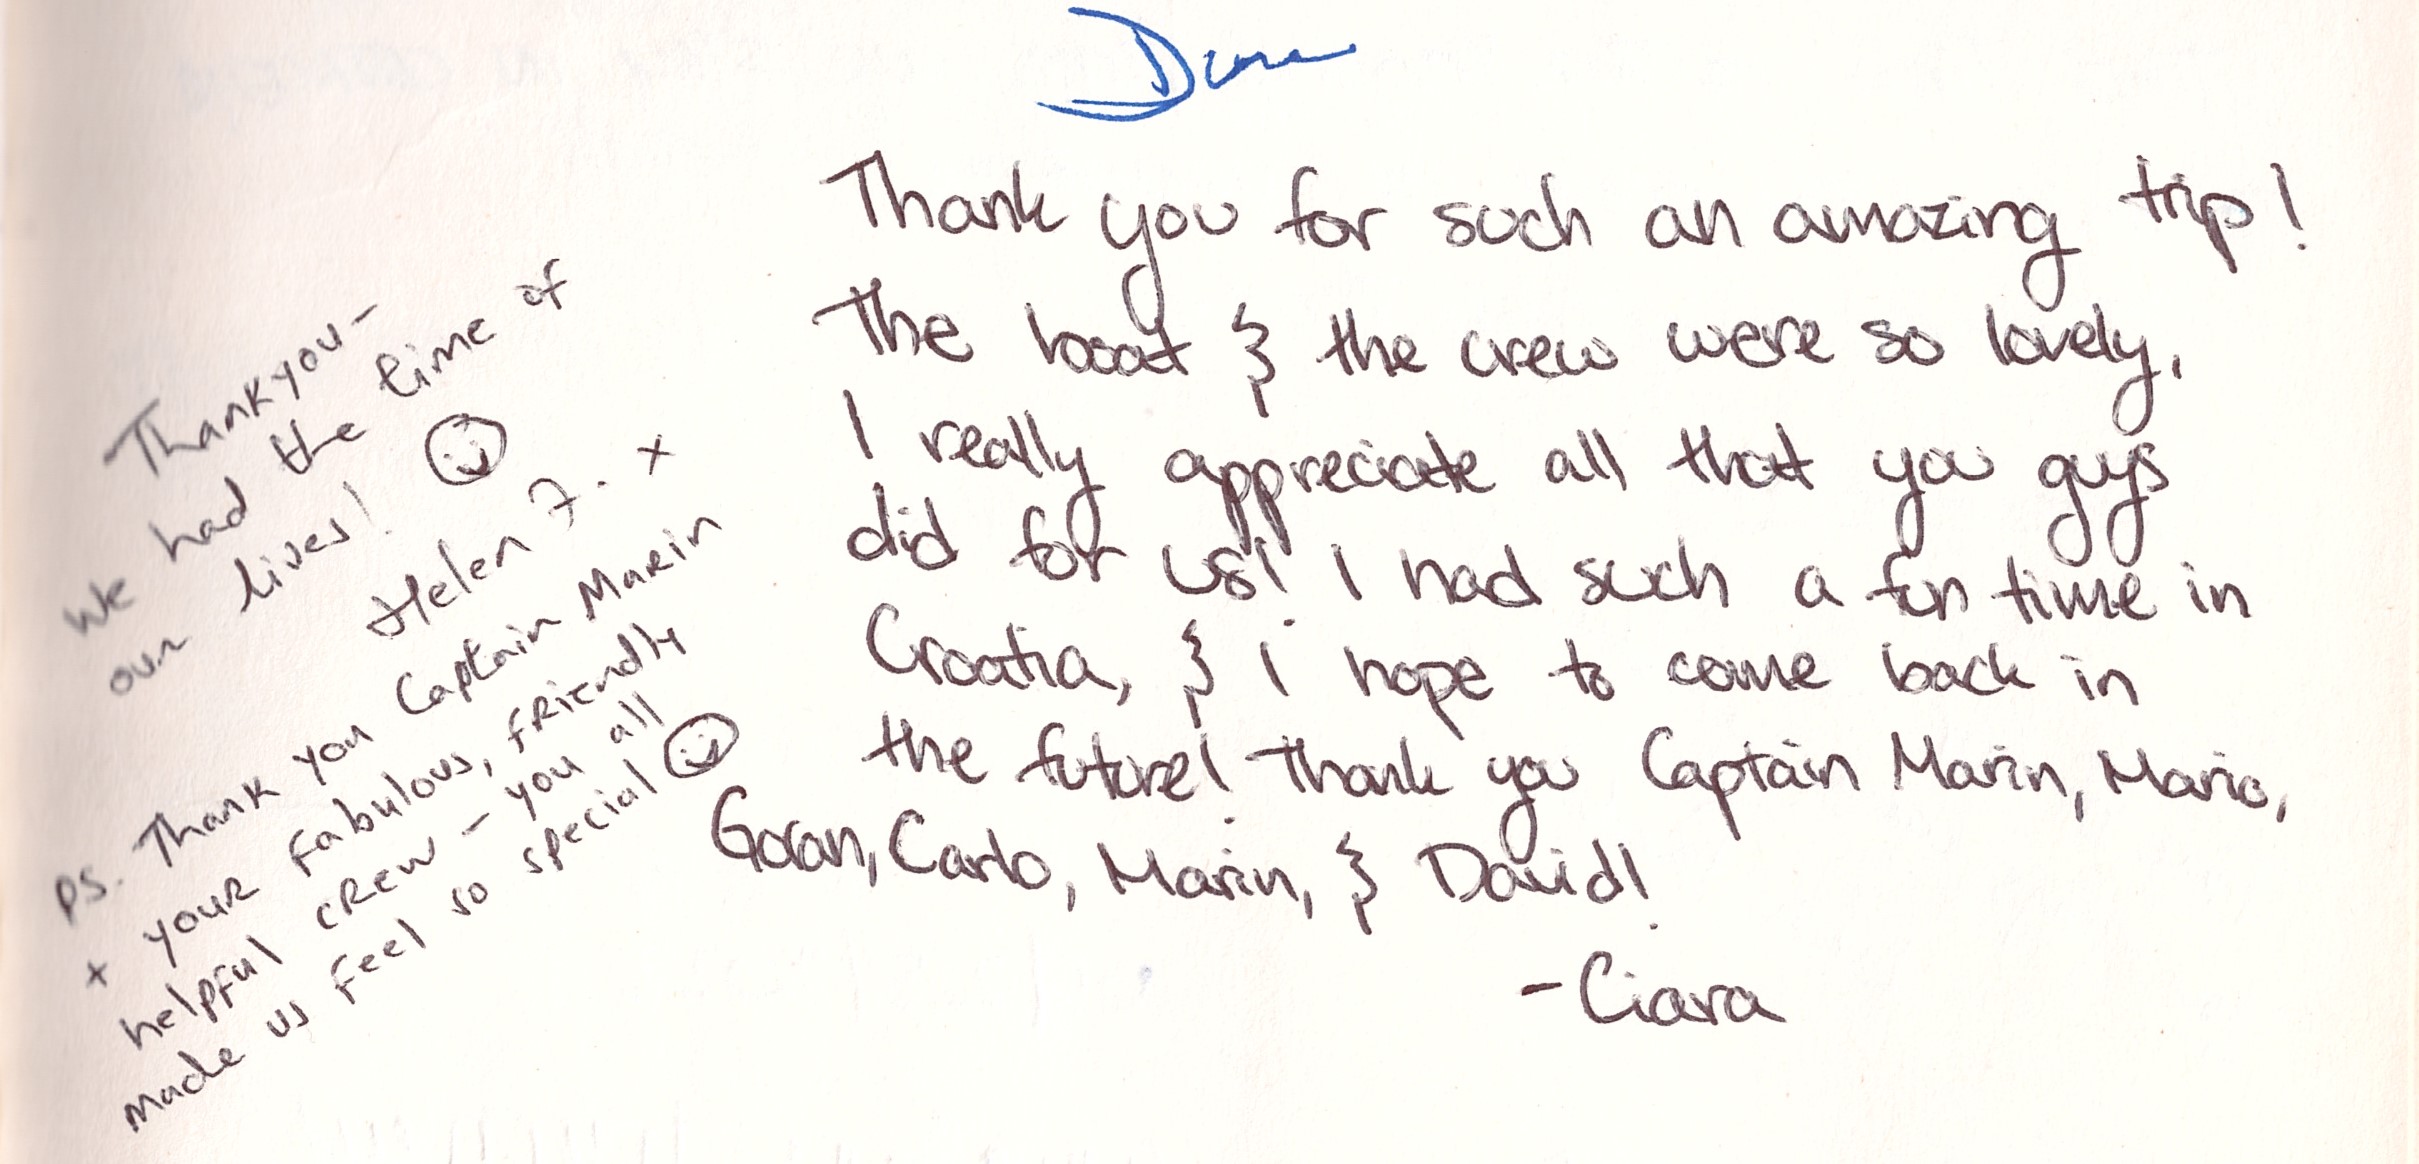 Thank you for such an amazing trip!
The boat & the crew were so lovely,
I really appreciate all that you guys
did for us! I had such a fun time in
Croatia, & i hope to come back in
the future! Thank you Captain Marin, Mario,
Goran, Carlo, Marin, & David!
-Ciara
Thankyou-
We had the time of
our lives! ☺
Helen 7. x
PS. Thank you Captain Marin
+ your fabulous, friendly
helpful crew - you all
made us feel so special ☺